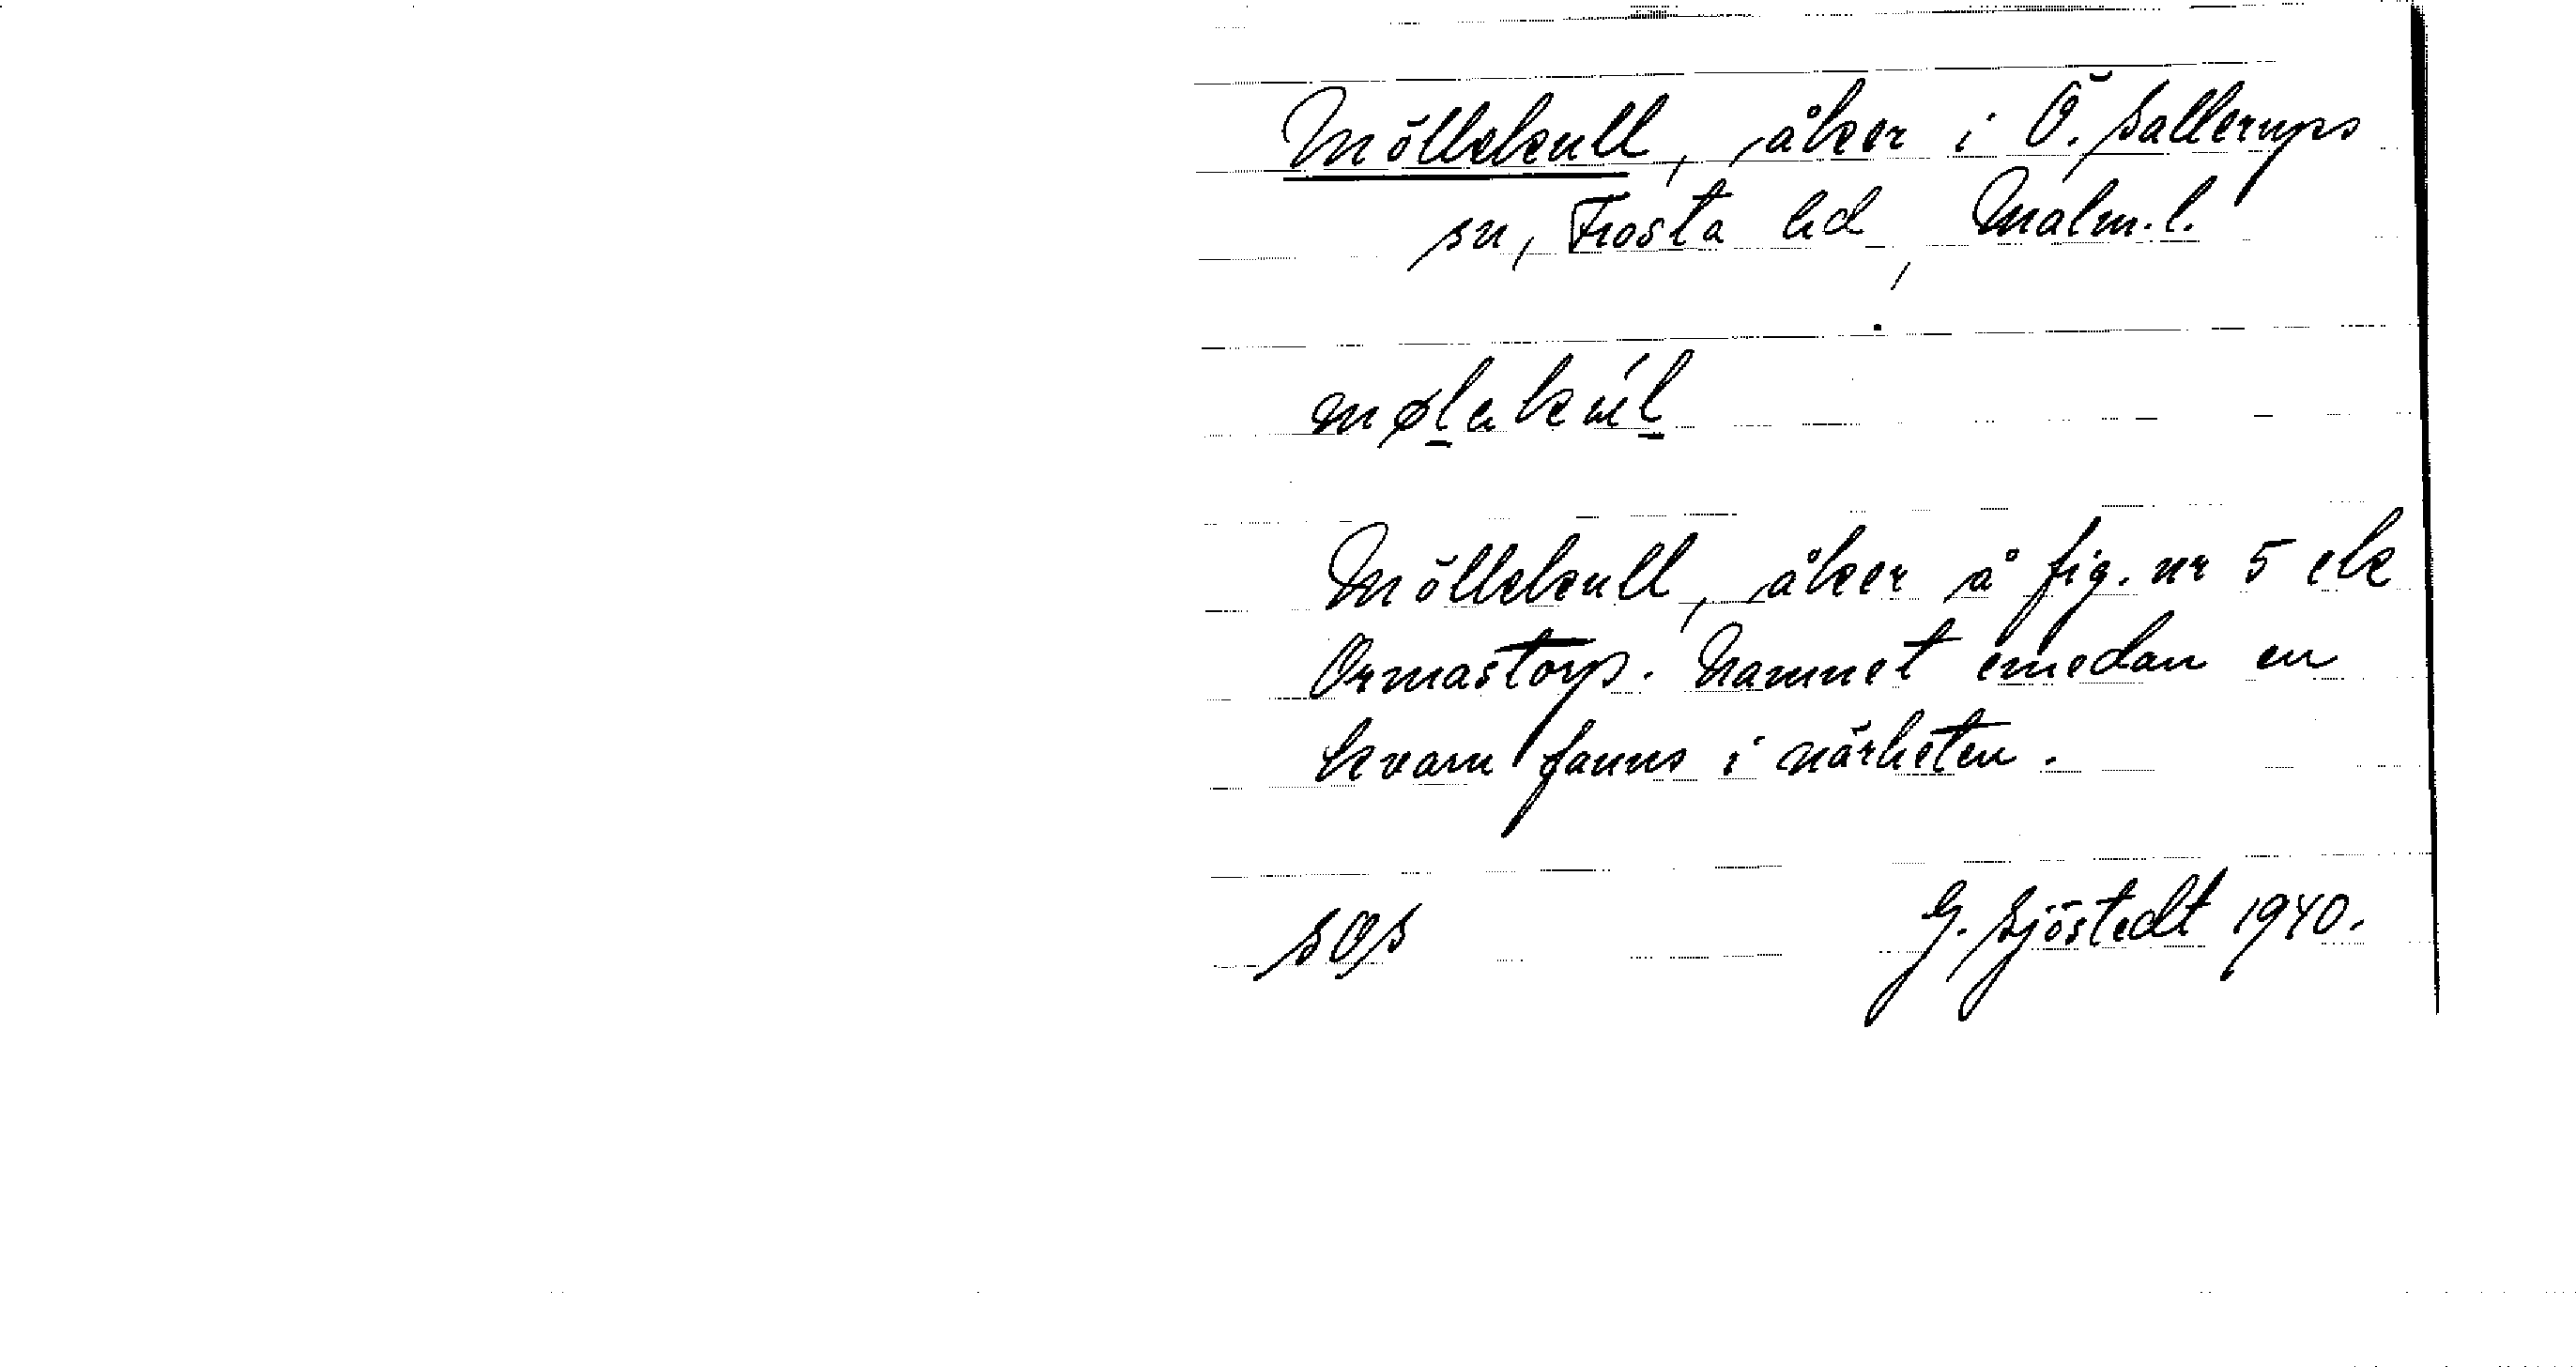 Möllekull, åker i Ö. Sallerups
sn, Frosta hd, Malm.l.
møl̲ekúl̲
Möllekull, åker å fig. nr 5 ek
Ormastorp. Namnet emedan en
kvarn fanns i närheten.
SOS G. Sjöstedt 1940.